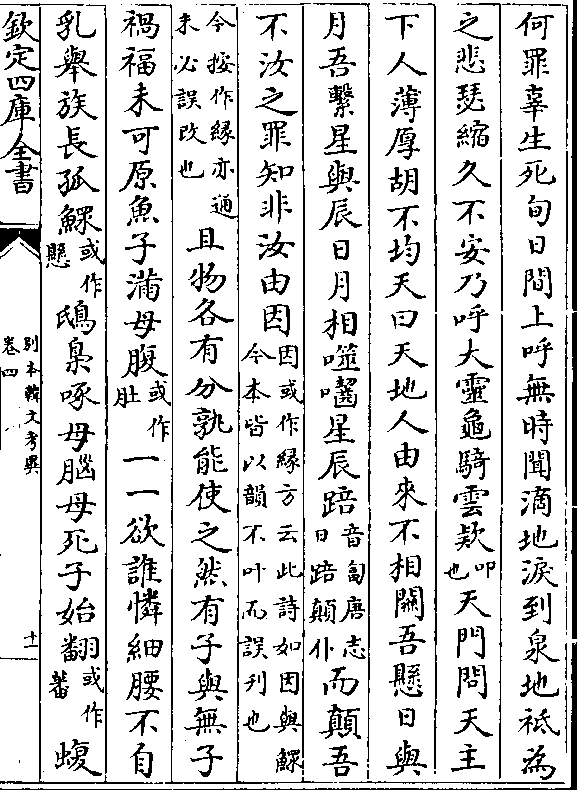 何罪辜生死旬日間上呼無時聞滴地淚到泉地祗為
之悲瑟縮久不安乃呼大靈龜騎雲欵叩也天門問天主
下人薄厚胡不均天曰天地人由來不相關吾懸日與
月吾繫星與辰日月相噬囓星辰踣音匐唐志曰踣顛仆而顛吾
不汝之罪知非汝由因因或作緣方云此詩如因與鰥今本皆以韻不叶而誤刋也
今按作緣亦通未必誤改也且物各有分孰能使之然有子與無子
禍福未可原魚子滿母腹或作肚一一欲誰憐細腰不自
乳舉族長孤鰥或作懸鴟梟啄母腦母死子始翻或作蕃蝮
欽定四庫全書
別本韓文考異
卷四
十二